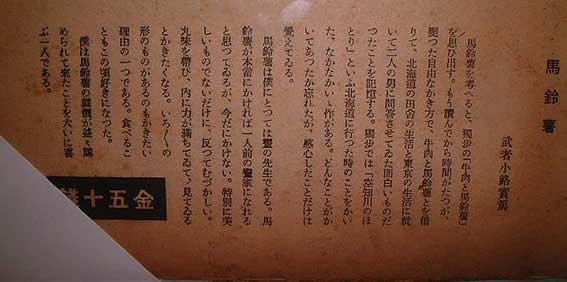 馬鈴薯
武者小路實篤
馬鈴薯を考へると、獨歩の「牛肉と馬鈴薯」
を思ひ出す。もう讀んでから時間がたつが、
變つた自由なかき方で、牛肉と馬鈴薯とを借
りて、北海道の田舎の生活と東京の生活に就
いて二人の男に問答させてゐた面白いものだ
つたことを記憶する。獨歩では「空知川のほ
とり」といふ北海道に行つた時のことをかい
た、なかなかいゝ作がある。どんなことがか
いてあつたか忘れたが、感心したことだけは
覺えてゐる。
馬鈴薯は僕にとつては畫の先生である。馬
鈴薯が本當にかければ一人前の畫家になれる
と思つてゐるが、今だにかけない。特別に美
しいものでないだけに、反つてむづかしい。
丸味を帶び、内に力が滿ちてゐて、見てゐる
とかきたくなる。いろ〳〵の
形のものがあるのもかきたい
理由の一つである。食べるこ
ともこの頃好きになつた。
僕は馬鈴薯の價値が益々認
められて來たことを大いに喜
ぶ一人である。
金五十錢